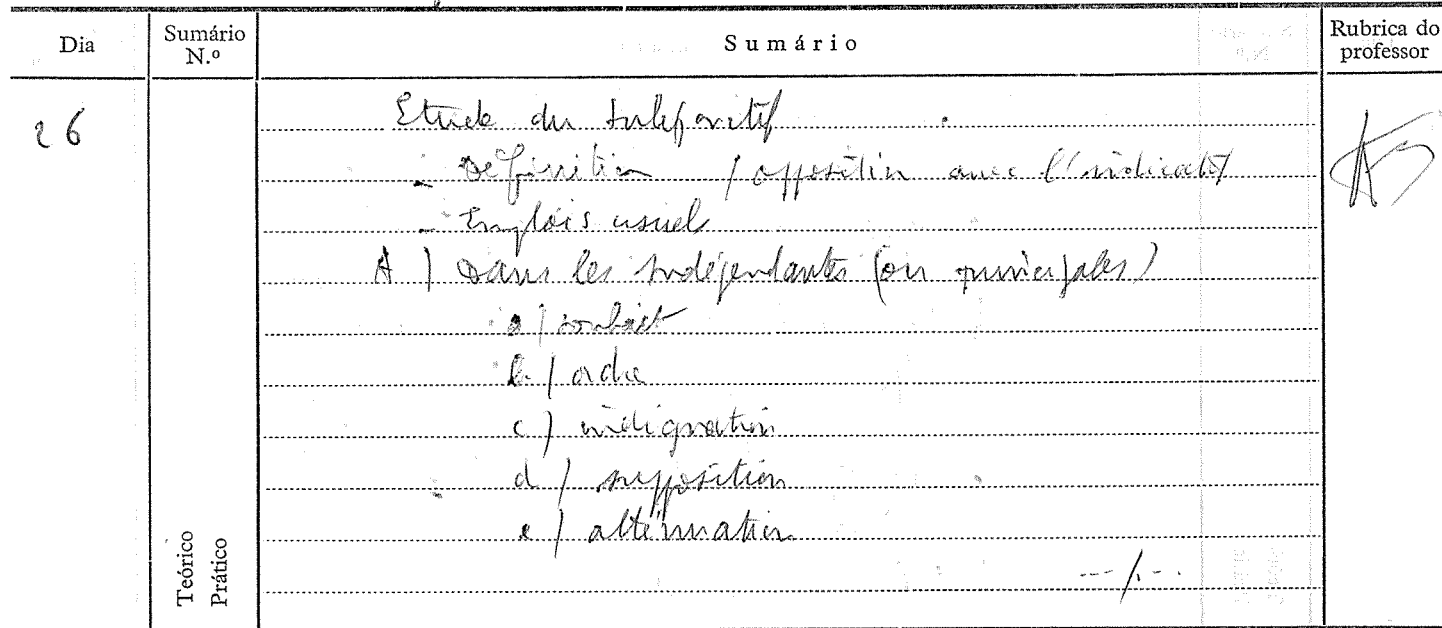 Dia
Sumário N.º
Sumário
Rubrica do professor
26
Etude du subjonctif
- Définition / opposition avec l'indicatif
- Emplois usuel
A / Dans les indépendantes (ou principales)
a / souhait
b / ordre
c / indignation
d / supposition
e / atténuation
Teórico
Prático
--/.--